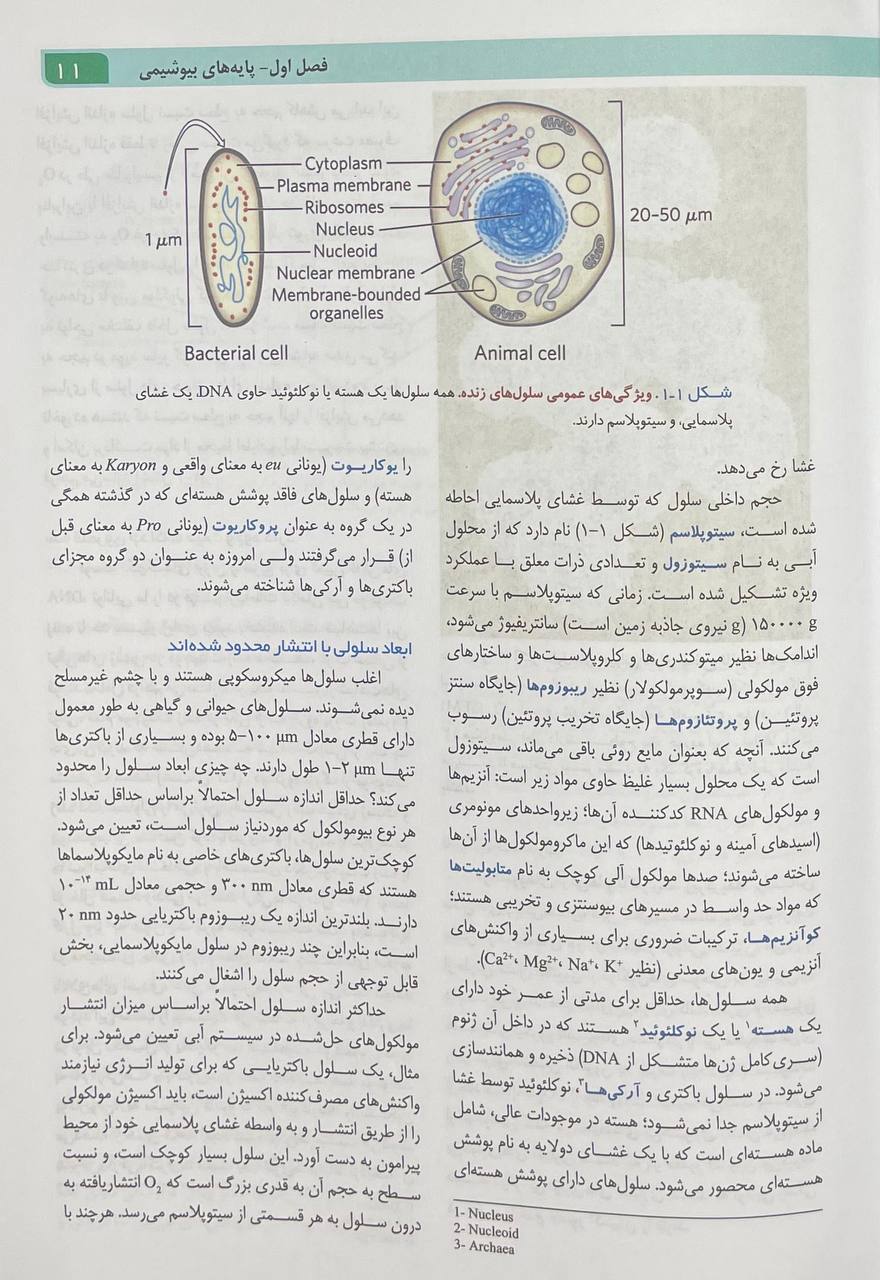 فصل اول- پایه‌های بیوشیمی
۱۱
Cytoplasm
Plasma membrane
Ribosomes
Nucleus
Nucleoid
Nuclear membrane
Membrane-bounded
organelles
1 µm
20–50 µm
Bacterial cell
Animal cell
شکل ۱-۱. ویژگی‌های عمومی سلول‌های زنده. همه سلول‌ها یک هسته یا نوکلوئید حاوی DNA، یک غشای
پلاسمایی، و سیتوپلاسم دارند.
غشا رخ می‌دهد.
حجم داخلی سلول که توسط غشای پلاسمایی احاطه
شده است، سیتوپلاسم (شکل ۱-۱) نام دارد که از محلول
آبی به نام سیتوزول و تعدادی ذرات معلق با عملکرد
ویژه تشکیل شده است. زمانی که سیتوپلاسم با سرعت
۱۵۰۰۰۰ g (g نیروی جاذبه زمین است) سانتریفیوژ می‌شود،
اندامک‌ها نظیر میتوکندری‌ها و کلروپلاست‌ها و ساختارهای
فوق مولکولی (سوپرمولکولار) نظیر ریبوزوم‌ها (جایگاه سنتز
پروتئین) و پروتئازوم‌ها (جایگاه تخریب پروتئین) رسوب
می‌کنند. آنچه که بعنوان مایع روئی باقی می‌ماند، سیتوزول
است که یک محلول بسیار غلیظ حاوی مواد زیر است: آنزیم‌ها
و مولکول‌های RNA کدکننده آن‌ها؛ زیرواحدهای مونومری
(اسیدهای آمینه و نوکلئوتیدها) که این ماکرومولکول‌ها از آن‌ها
ساخته می‌شوند؛ صدها مولکول آلی کوچک به نام متابولیت‌ها
که مواد حد واسط در مسیرهای بیوسنتزی و تخریبی هستند؛
کوآنزیم‌ها، ترکیبات ضروری برای بسیاری از واکنش‌های
آنزیمی و یون‌های معدنی (نظیر Ca²⁺، Mg²⁺، Na⁺، K⁺).
همه سلول‌ها، حداقل برای مدتی از عمر خود دارای
یک هسته¹ یا یک نوکلوئید² هستند که در داخل آن ژنوم
(سری کامل ژن‌ها متشکل از DNA) ذخیره و همانندسازی
می‌شود. در سلول باکتری و آرکی‌ها³، نوکلوئید توسط غشا
از سیتوپلاسم جدا نمی‌شود؛ هسته در موجودات عالی، شامل
ماده هسته‌ای است که با یک غشای دولایه به نام پوشش
هسته‌ای محصور می‌شود. سلول‌های دارای پوشش هسته‌ای
1- Nucleus
2- Nucleoid
3- Archaea
را یوکاریوت (یونانی eu به معنای واقعی و Karyon به معنای
هسته) و سلول‌های فاقد پوشش هسته‌ای که در گذشته همگی
در یک گروه به عنوان پروکاریوت (یونانی Pro به معنای قبل
از) قرار می‌گرفتند ولی امروزه به عنوان دو گروه مجزای
باکتری‌ها و آرکی‌ها شناخته می‌شوند.
ابعاد سلولی با انتشار محدود شده‌اند
اغلب سلول‌ها میکروسکوپی هستند و با چشم غیرمسلح
دیده نمی‌شوند. سلول‌های حیوانی و گیاهی به طور معمول
دارای قطری معادل ۵-۱۰۰ µm بوده و بسیاری از باکتری‌ها
تنها ۱-۲ µm طول دارند. چه چیزی ابعاد سلول را محدود
می‌کند؟ حداقل اندازه سلول احتمالاً براساس حداقل تعداد از
هر نوع بیومولکول که موردنیاز سلول است، تعیین می‌شود.
کوچک‌ترین سلول‌ها، باکتری‌های خاصی به نام مایکوپلاسماها
هستند که قطری معادل ۳۰۰ nm و حجمی معادل ۱۰⁻¹⁴ mL
دارند. بلندترین اندازه یک ریبوزوم باکتریایی حدود ۲۰ nm
است، بنابراین چند ریبوزوم در سلول مایکوپلاسمایی، بخش
قابل توجهی از حجم سلول را اشغال می‌کنند.
حداکثر اندازه سلول احتمالاً براساس میزان انتشار
مولکول‌های حل‌شده در سیستم آبی تعیین می‌شود. برای
مثال، یک سلول باکتریایی که برای تولید انرژی نیازمند
واکنش‌های مصرف‌کننده اکسیژن است، باید اکسیژن مولکولی
را از طریق انتشار و به واسطه غشای پلاسمایی خود از محیط
پیرامون به دست آورد. این سلول بسیار کوچک است، و نسبت
سطح به حجم آن به قدری بزرگ است که O₂ انتشاریافته به
درون سلول به هر قسمتی از سیتوپلاسم می‌رسد. هرچند با